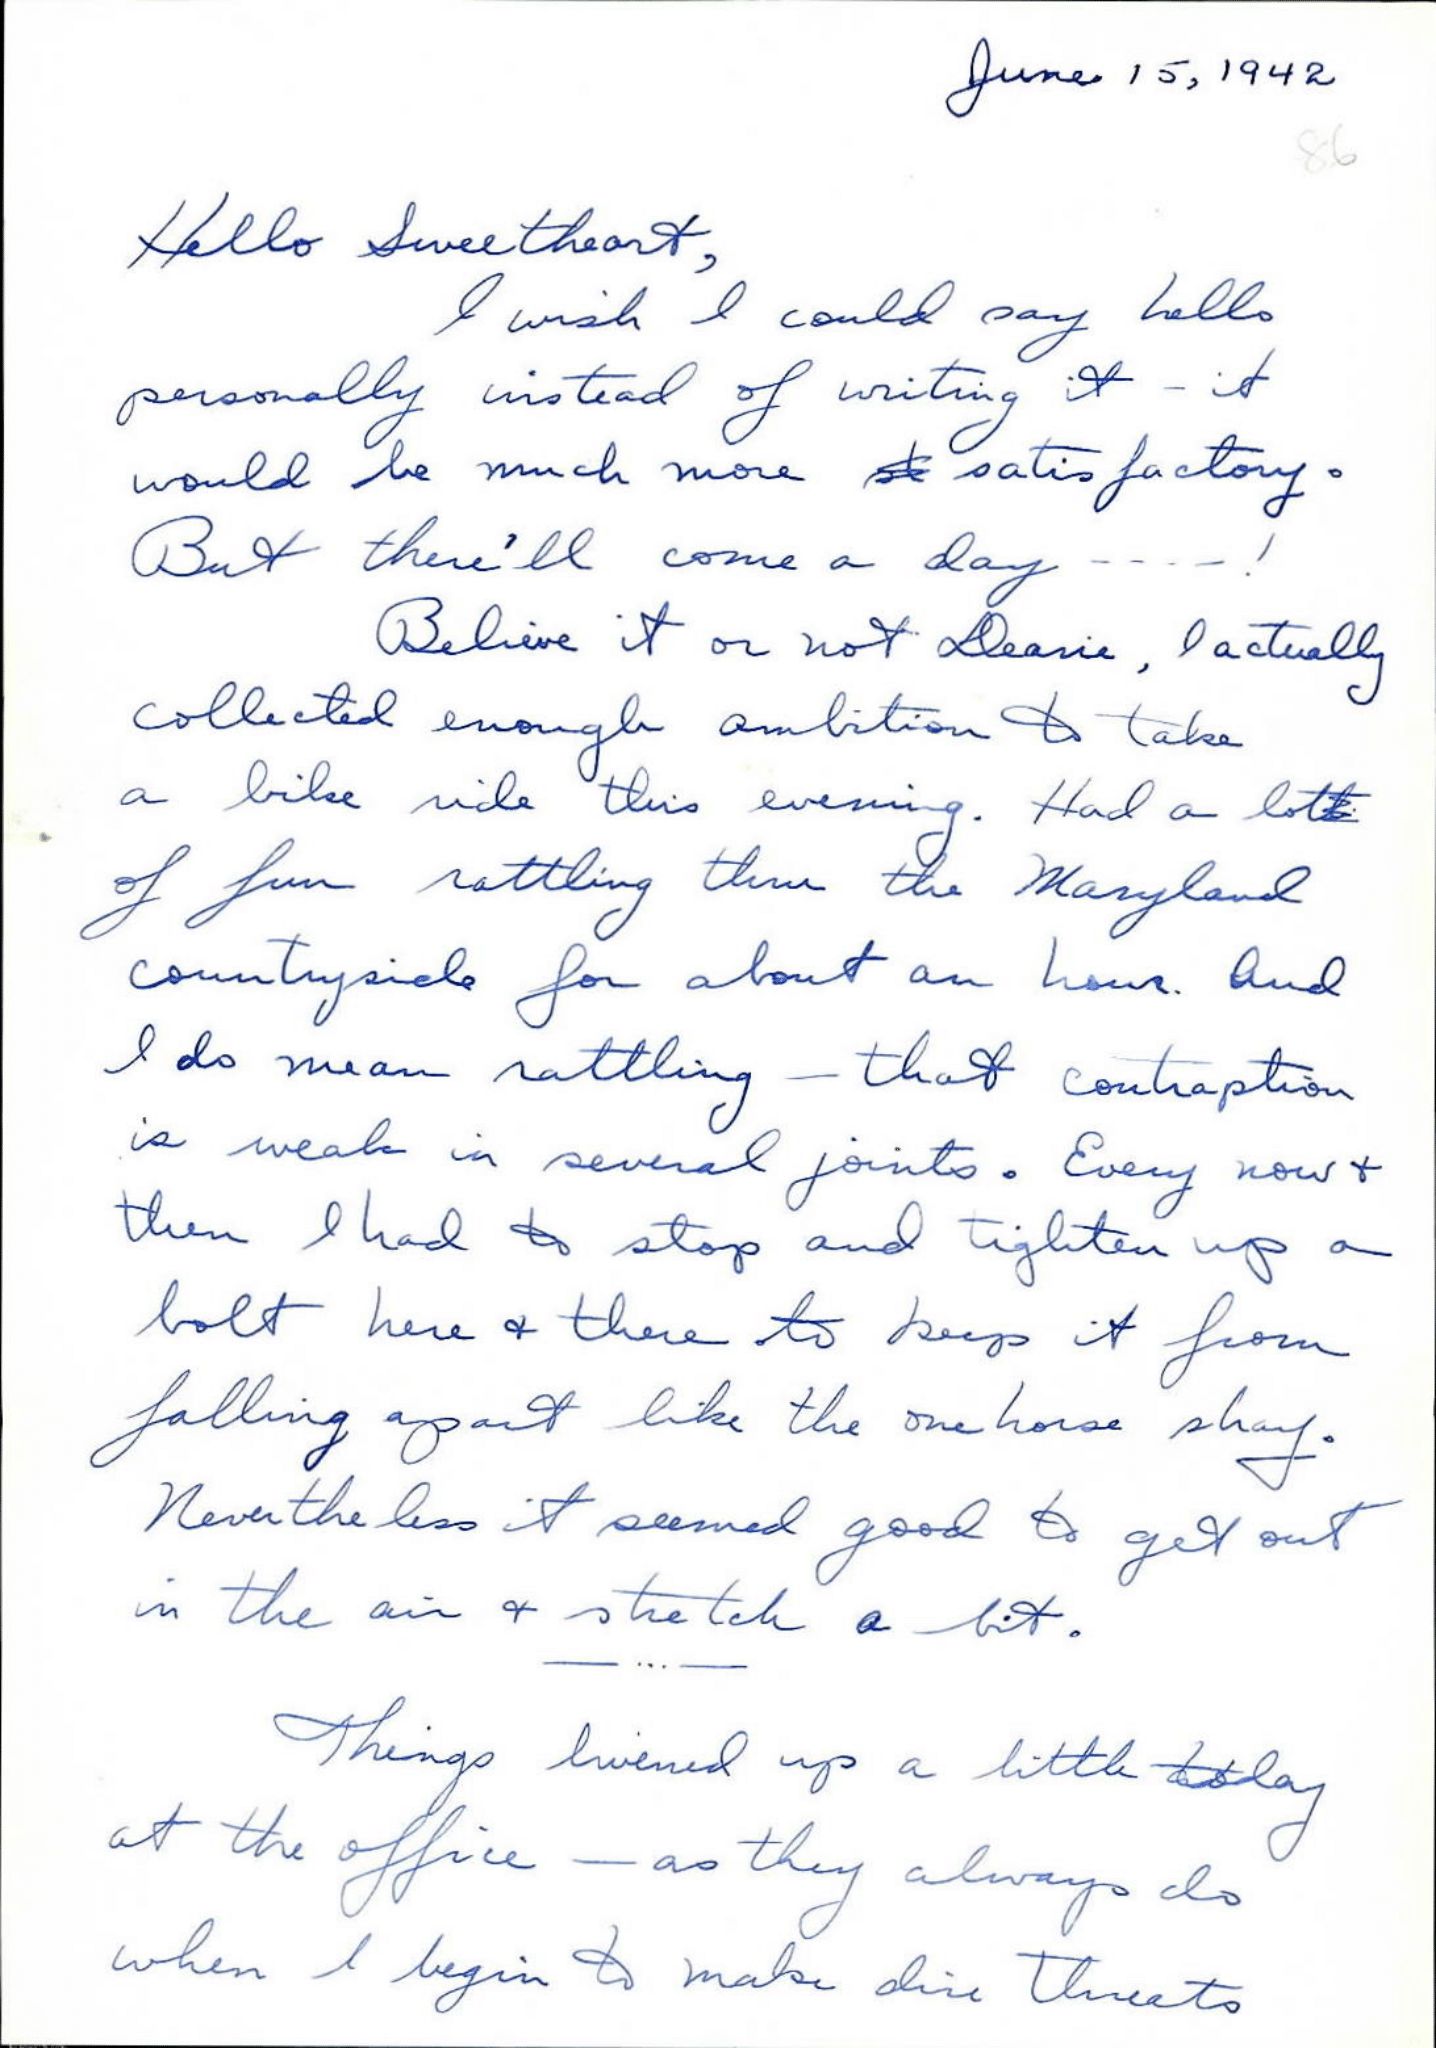 June 15, 1942
86
Hello Sweetheart,
I wish I could say hello
personally instead of writing it - it
would be much more satisfactory.
But there'll come a day ----!
Believe it or not Dearie, I actually
collected enough ambition to take
a bike ride this evening. Had a lot
of fun rattling thru the Maryland
countryside for about an hour. And
I do mean rattling — that contraption
is weak in several joints. Every now +
then I had to stop and tighten up a
bolt here + there to keep it from
falling apart like the one horse shay.
Nevertheless it seemed good to get out
in the air + stretch a bit.
— ... —
Things livened up a little today
at the office — as they always do
when I begin to make dire threats